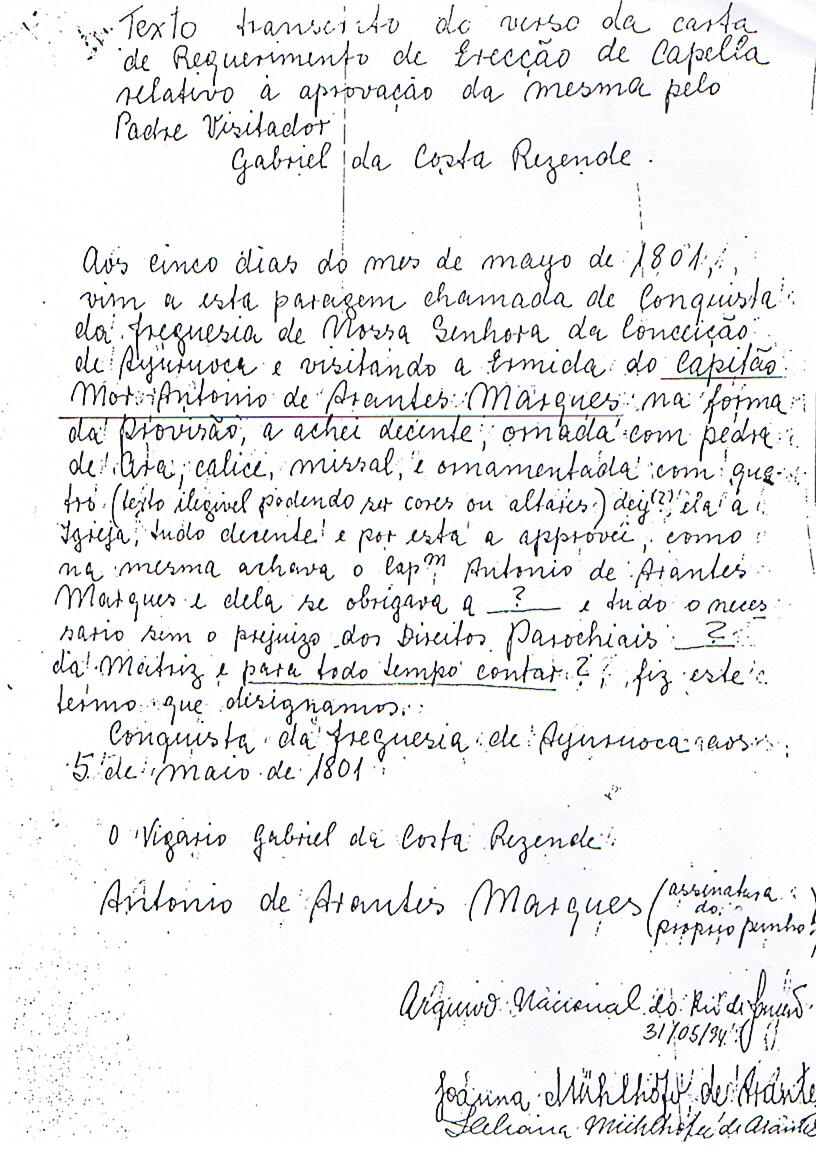 Texto transcrito do verso da carta
de Requerimento de Erecção de Capella
relativo à aprovação da mesma pelo
Padre Visitador
Gabriel da Costa Rezende.
Aos cinco dias do mes de mayo de 1801,
vim a esta paragem chamada de Conquista
da freguesia de Nossa Senhora da Conceição
de Ayuruoca e visitando a Ermida do Capitão
Mor Antonio de Arantes Marques na forma
da Provisão, a achei decente, ornada com pedra
de Ara, calice, missal, e ornamentada com qua-
tro (texto ilegivel podendo ser cores ou altares) dey(?) ela a
Igreja, tudo decente e por esta a approvei, como
na mesma achava o Capm Antonio de Arantes
Marques e dela se obrigava a ? e tudo o neces
sario sem o prejuizo dos Direitos Parochiais ?
da Matriz e para todo tempo contar ?, fiz este
termo que designamos.
Conquista da freguesia de Ayuruoca aos
5 de maio de 1801
O Vigario Gabriel da Costa Rezende
Antonio de Arantes Marques (assinatura
do
proprio punho)
Arquivo Nacional do Rio de Janeiro
31/05/94
Joanna Mühlhofer de Arante
Mühlhofer de Arantes